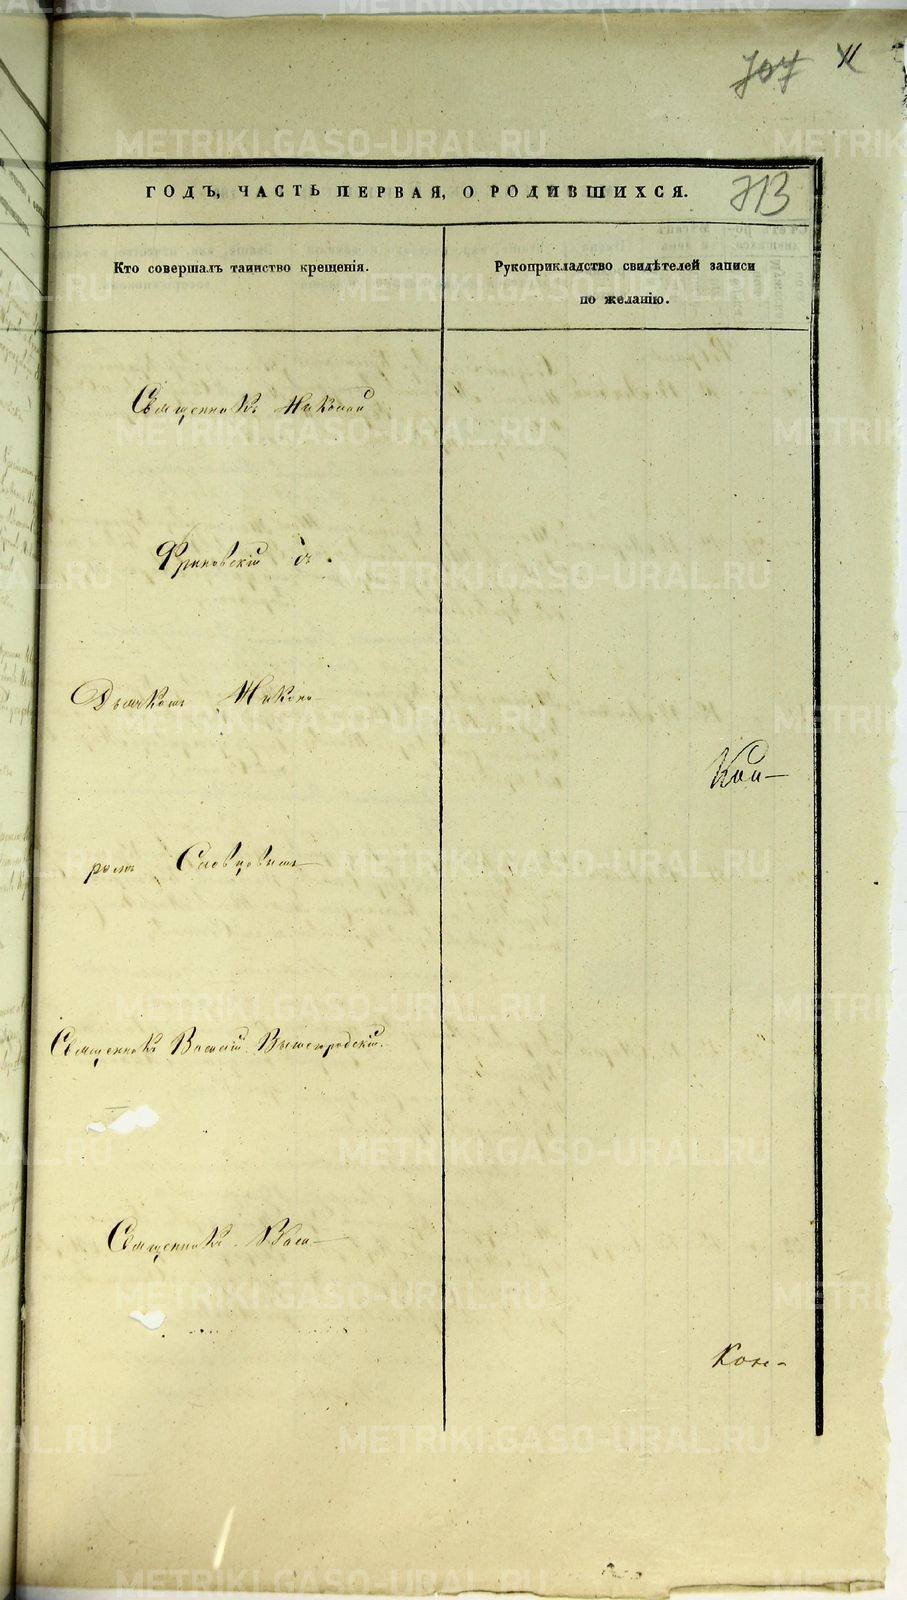 707 11
ГОДЪ, ЧАСТЬ ПЕРВАЯ, О РОДИВШИХСЯ.
713
Кто совершалъ таинство крещенія.
Рукоприкладство свидѣтелей записи
по желанію.
Священникъ Николай
Фряновскій съ
Дьячкомъ Никано
Кон-
ромъ Словцовымъ
Священникъ Василій Вышегородскій.
Священникъ Васи-
Кон-
METRIKI.GASO-URAL.RU